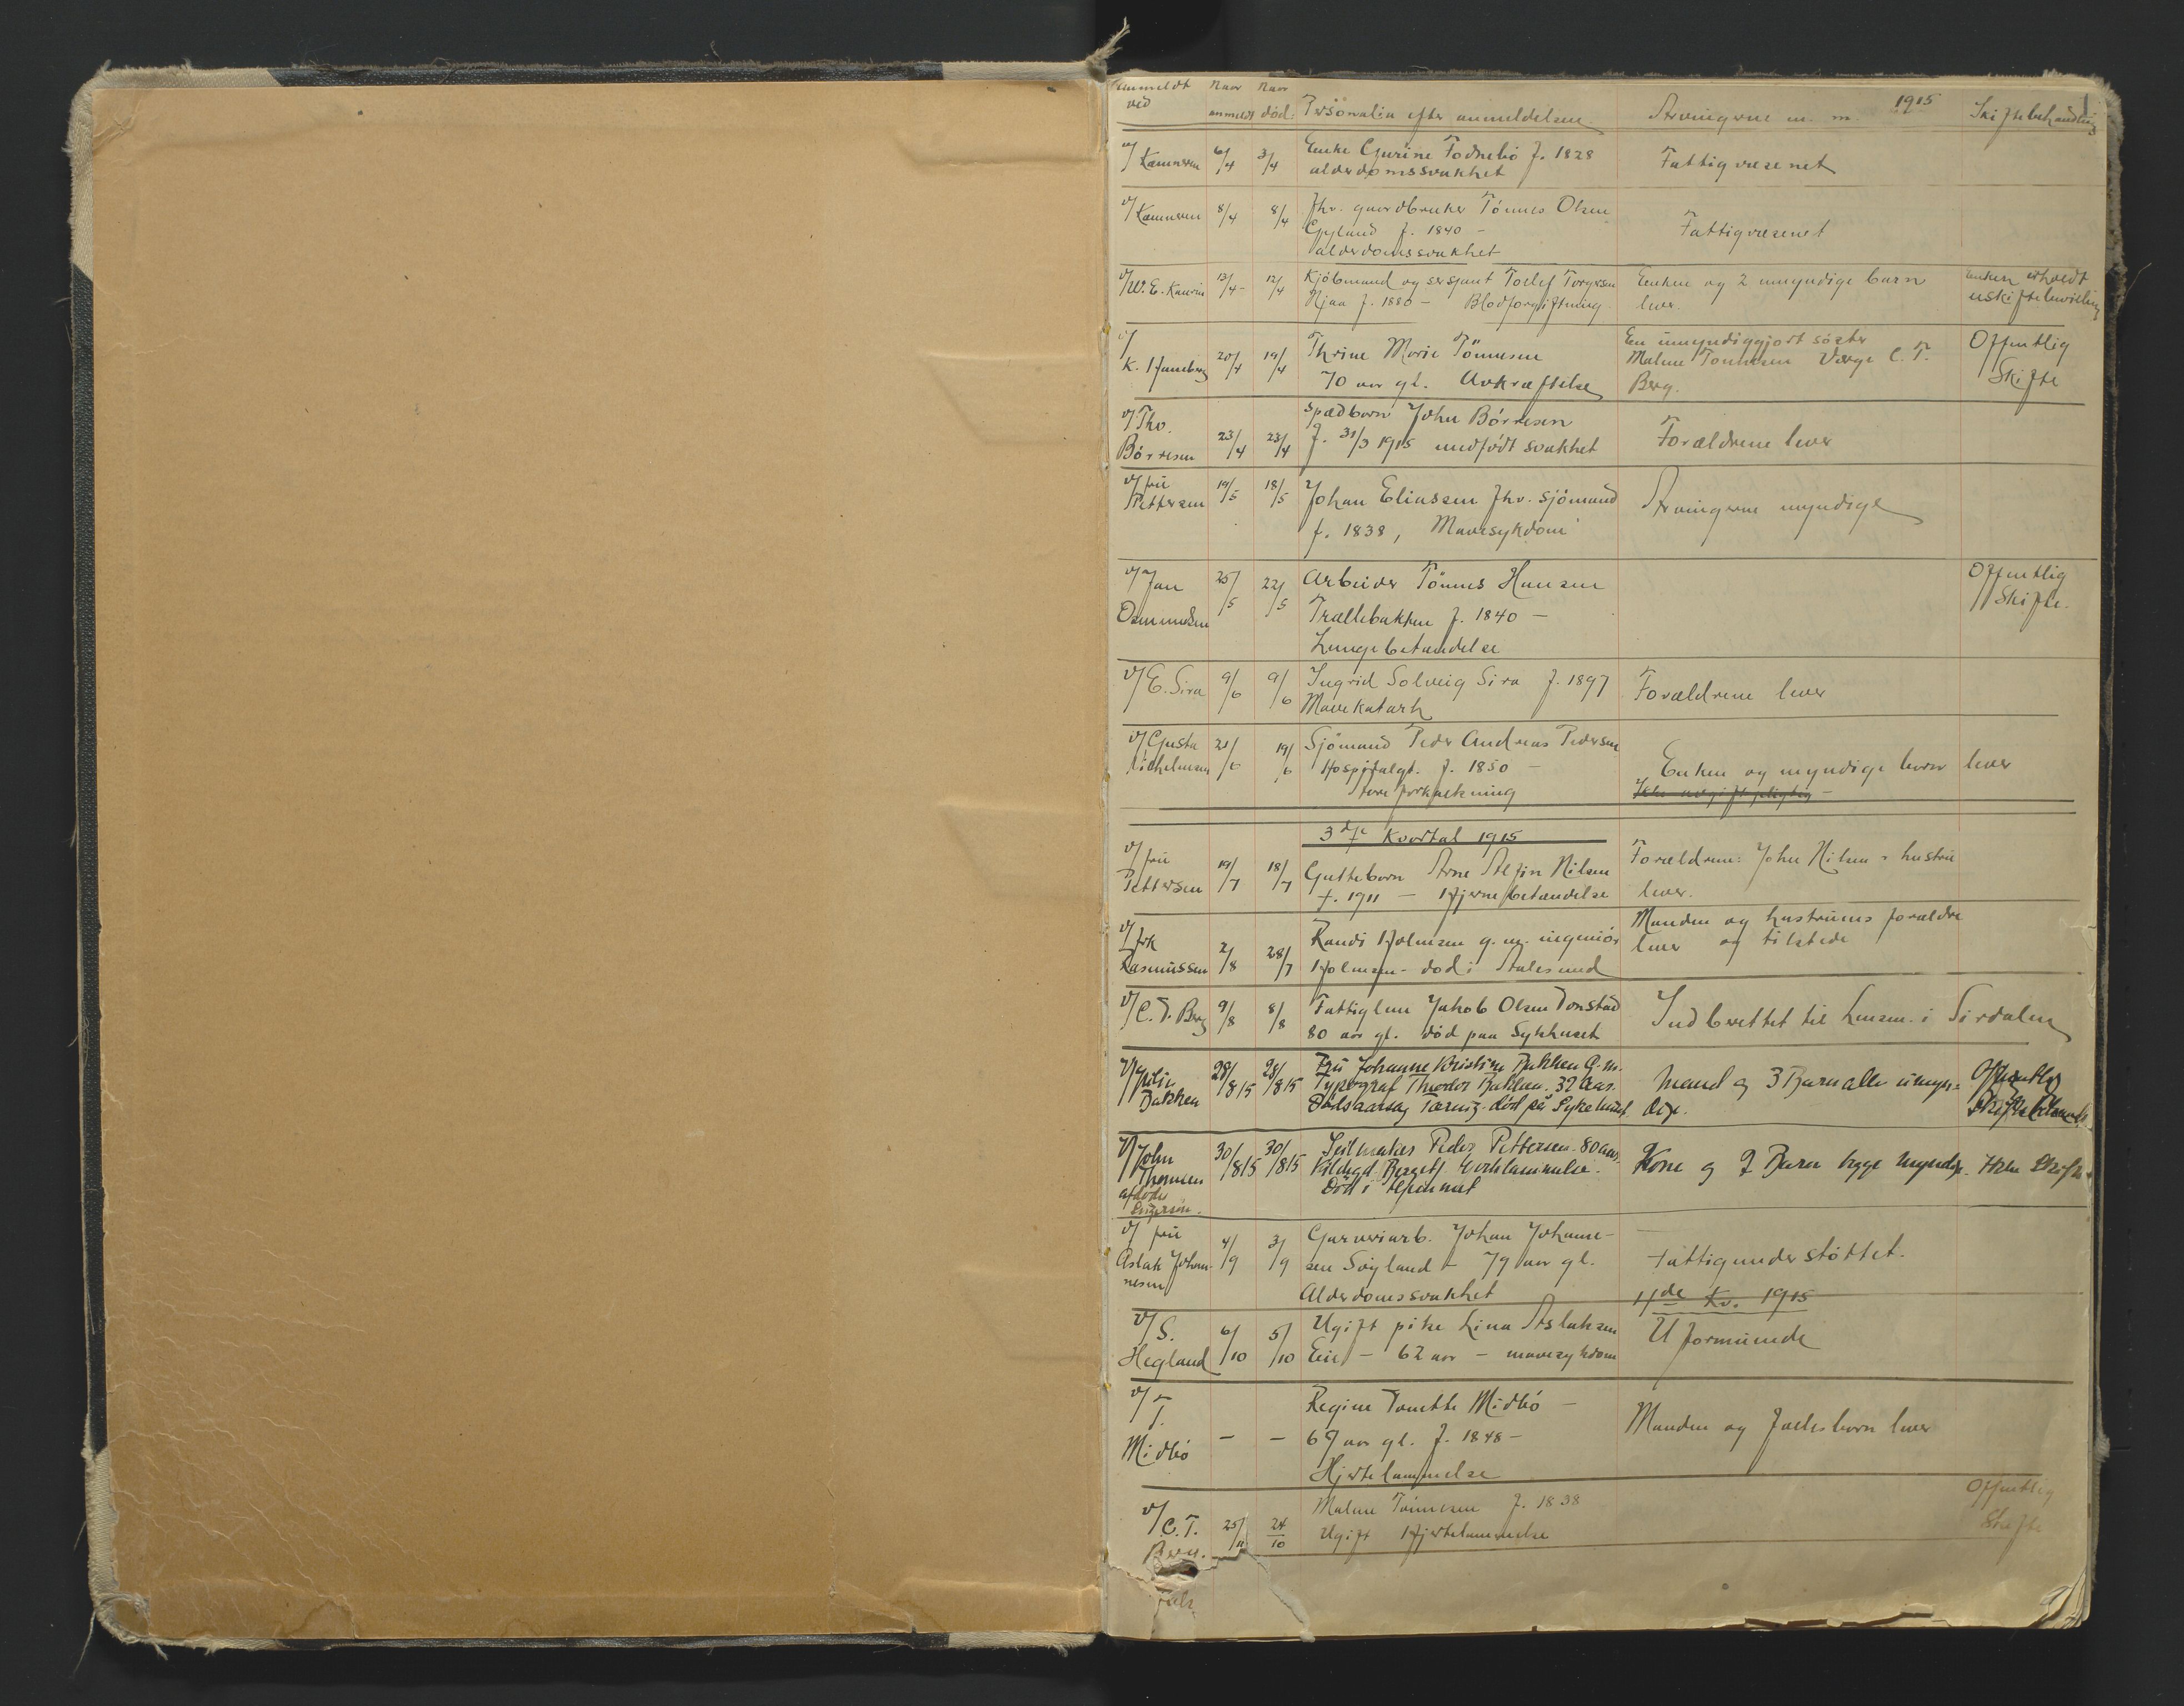 Anmeldt ved Naar anmeldt Naar død: Personalia efter anmeldelsen. Arvingerne m. m. 1915 Skiftebehandling 1
v/ Kæmneren 6/4 3/4 Enke Gurine Fodnebö f. 1828 Fattigvæsenet
alderdomssvakhet
v/ Kæmneren 8/4 8/4 Fhv. gaardbruker Tönnes Olsen Fattigvæsenet
Gyland f. 1840 –
alderdomssvakhet
v/ W. E. 13/4 – 12/4 Kjöbmand og sersjant Tollef Torgersen Enken og 2 umyndige barn Enken erholdt
Njaa f. 1880 – Blodforgiftning. lever. uskiftebevilling
v/ 20/4 19/4 Thrine Marie Tönnesen En umyndiggjort söster Offentlig
K. Hamberg 70 aar gl. Avkræftelse Malene Tonnesen Verge C. T. Skifte
Berg.
v/ Tho. Spædbarn John Börresen
Börresen 23/4 23/4 f. 31/3 1915 medfödt svakhet Forældrene lever
v/ fru 19/5 18/5 Johan Eliassen fhv. sjömand Arvingerne myndige
Pettersen f. 1838, Mavesykdom
v/ Jan 25/5 22/5 Arbeider Tönnes Hansen Offentlig
Osmundsen Trællebakken f. 1840 – Skifte.
Lungebetændelse
v/ E. Sira 9/6 9/6 Ingrid Solveig Sira f. 1897 Forældrene lever
Mavekatarh
v/ Gusta 21/6 19/6 Sjömand Peder Andreas Pedersen
Michelsen Hospitalgt. f. 1850 – Enken og myndige barn lever
forkalkning Ikke avgiftspligtig –
3dje Kvartal 1915
v/ fru 19/7 18/7 Gutteborn Arne Alfin Nilsen Forældrene: John Nilsen & hustru
Pettersen f. 1911 – Hjernebetændelse lever.
v/ frk 2/8 28/7 Randi Holmsen g. m. ingeniör Manden og hustruens forældre
Rasmussen Holmsen – död i Aalesund lever og tilstede
v/ C. T. Berg 9/8 8/8 Fattiglem Jakob Olsen Tonstad Indberettet til Lensm. i Sirdalen
80 aar gl. död paa Sykhuset
v/ Julie 28/8 15 28/8 15 Fru Johanne Kristine Bakken G. m. Mand og 3 Barn alle umyn- Offentlig
Bakken Typograf Theodor Bakken. 32 Aar. dige. Skiftebehandl.
Dödsaarsag Tæring. död på Sykehuset.
v/ John 30/8 15 30/8 15 Seilmaker Peder Pettersen. 80 aar. Kone og 2 Barn begge myndige. Ikke Skifte
Thomsen Kildegd. Berget. Hjertelammelse.
afdödes Död i Hjemmet
Svigersön.
v/ fru 4/9 3/9 Garveriarb. Johan Johanne-
Aslak Johan- sen Söyland – 79 aar gl. Fattigunderstöttet.
nesen Alderdomssvakhet
4de Kv. 1915
v/ S. 6/10 5/10 Ugift pike Lina Aslaksen Uformuende
Hegland Eie – 62 aar – mavesykdom
v/ T. – – Regine Tonette Midbö – Manden og fælesbarn lever
Midbö 67 aar gl. f. 1848 –
Hjertelammelse
v/ C. T. 25/11 24/10 Malene Tönnesen f. 1838 Offentlig
Berg. Ugift Hjertelammelse Skifte